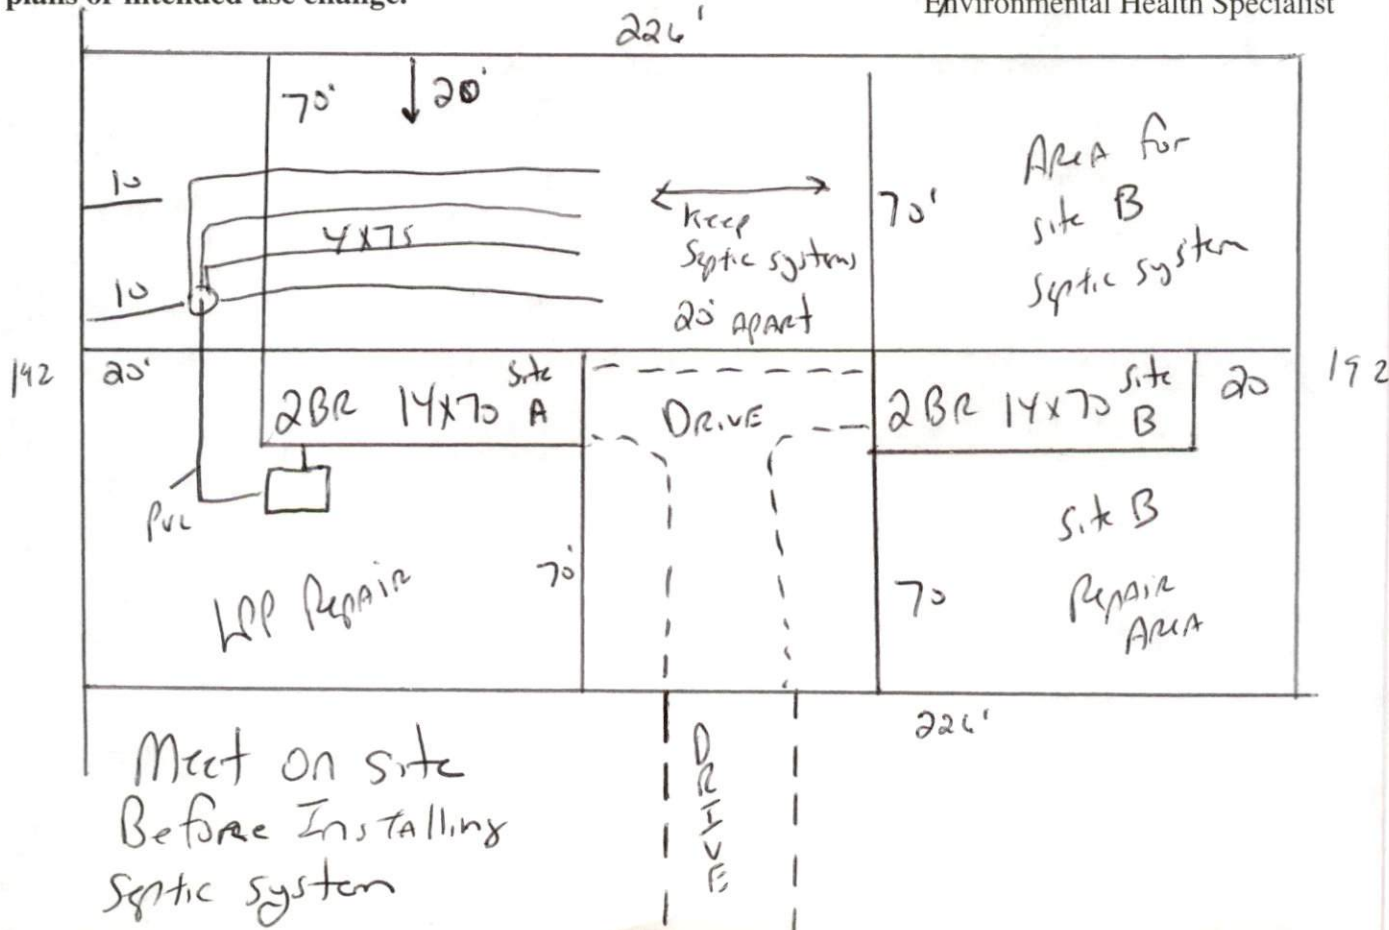 plans or intended use change.
Environmental Health Specialist
226'
70'
20'
10
4x75
10
Keep
Septic systems
20' APART
70'
AREA for
site B
Septic system
192
20'
2BR 14x70 Site A
DRIVE
2BR 14x70 Site B
20
192
PVC
LPP Repair
70'
70
Site B
Repair
AREA
226'
Meet on site
Before Installing
Septic system
DRIVE